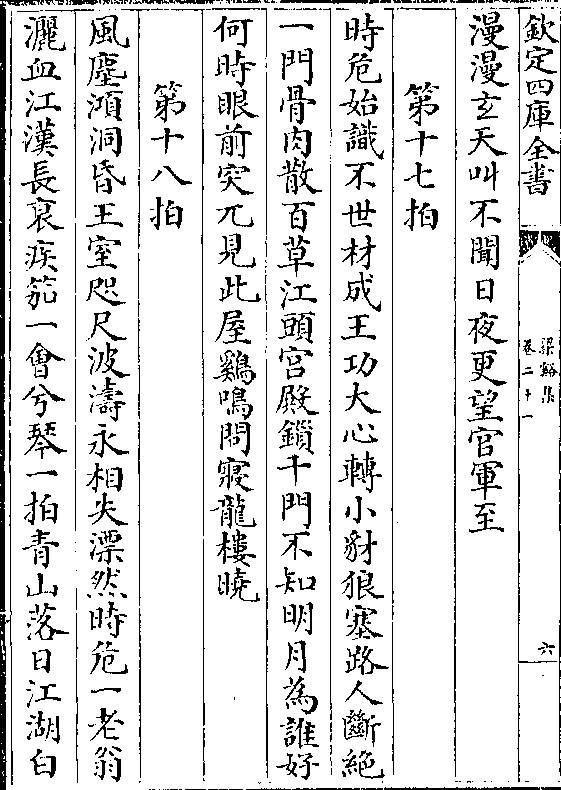 欽定四庫全書
梁谿集
卷二十一
六
漫漫玄天叫不聞日夜更望官軍至
第十七拍
時危始識不世材成王功大心轉小豺狼塞路人斷絶
一門骨肉散百草江頭宫殿鎖千門不知明月為誰好
何時眼前突兀見此屋鷄鳴問寢龍樓曉
第十八拍
風塵澒洞昏王室咫尺波濤永相失漂然時危一老翁
灑血江漢長衰疾笳一會兮琴一拍青山落日江湖白